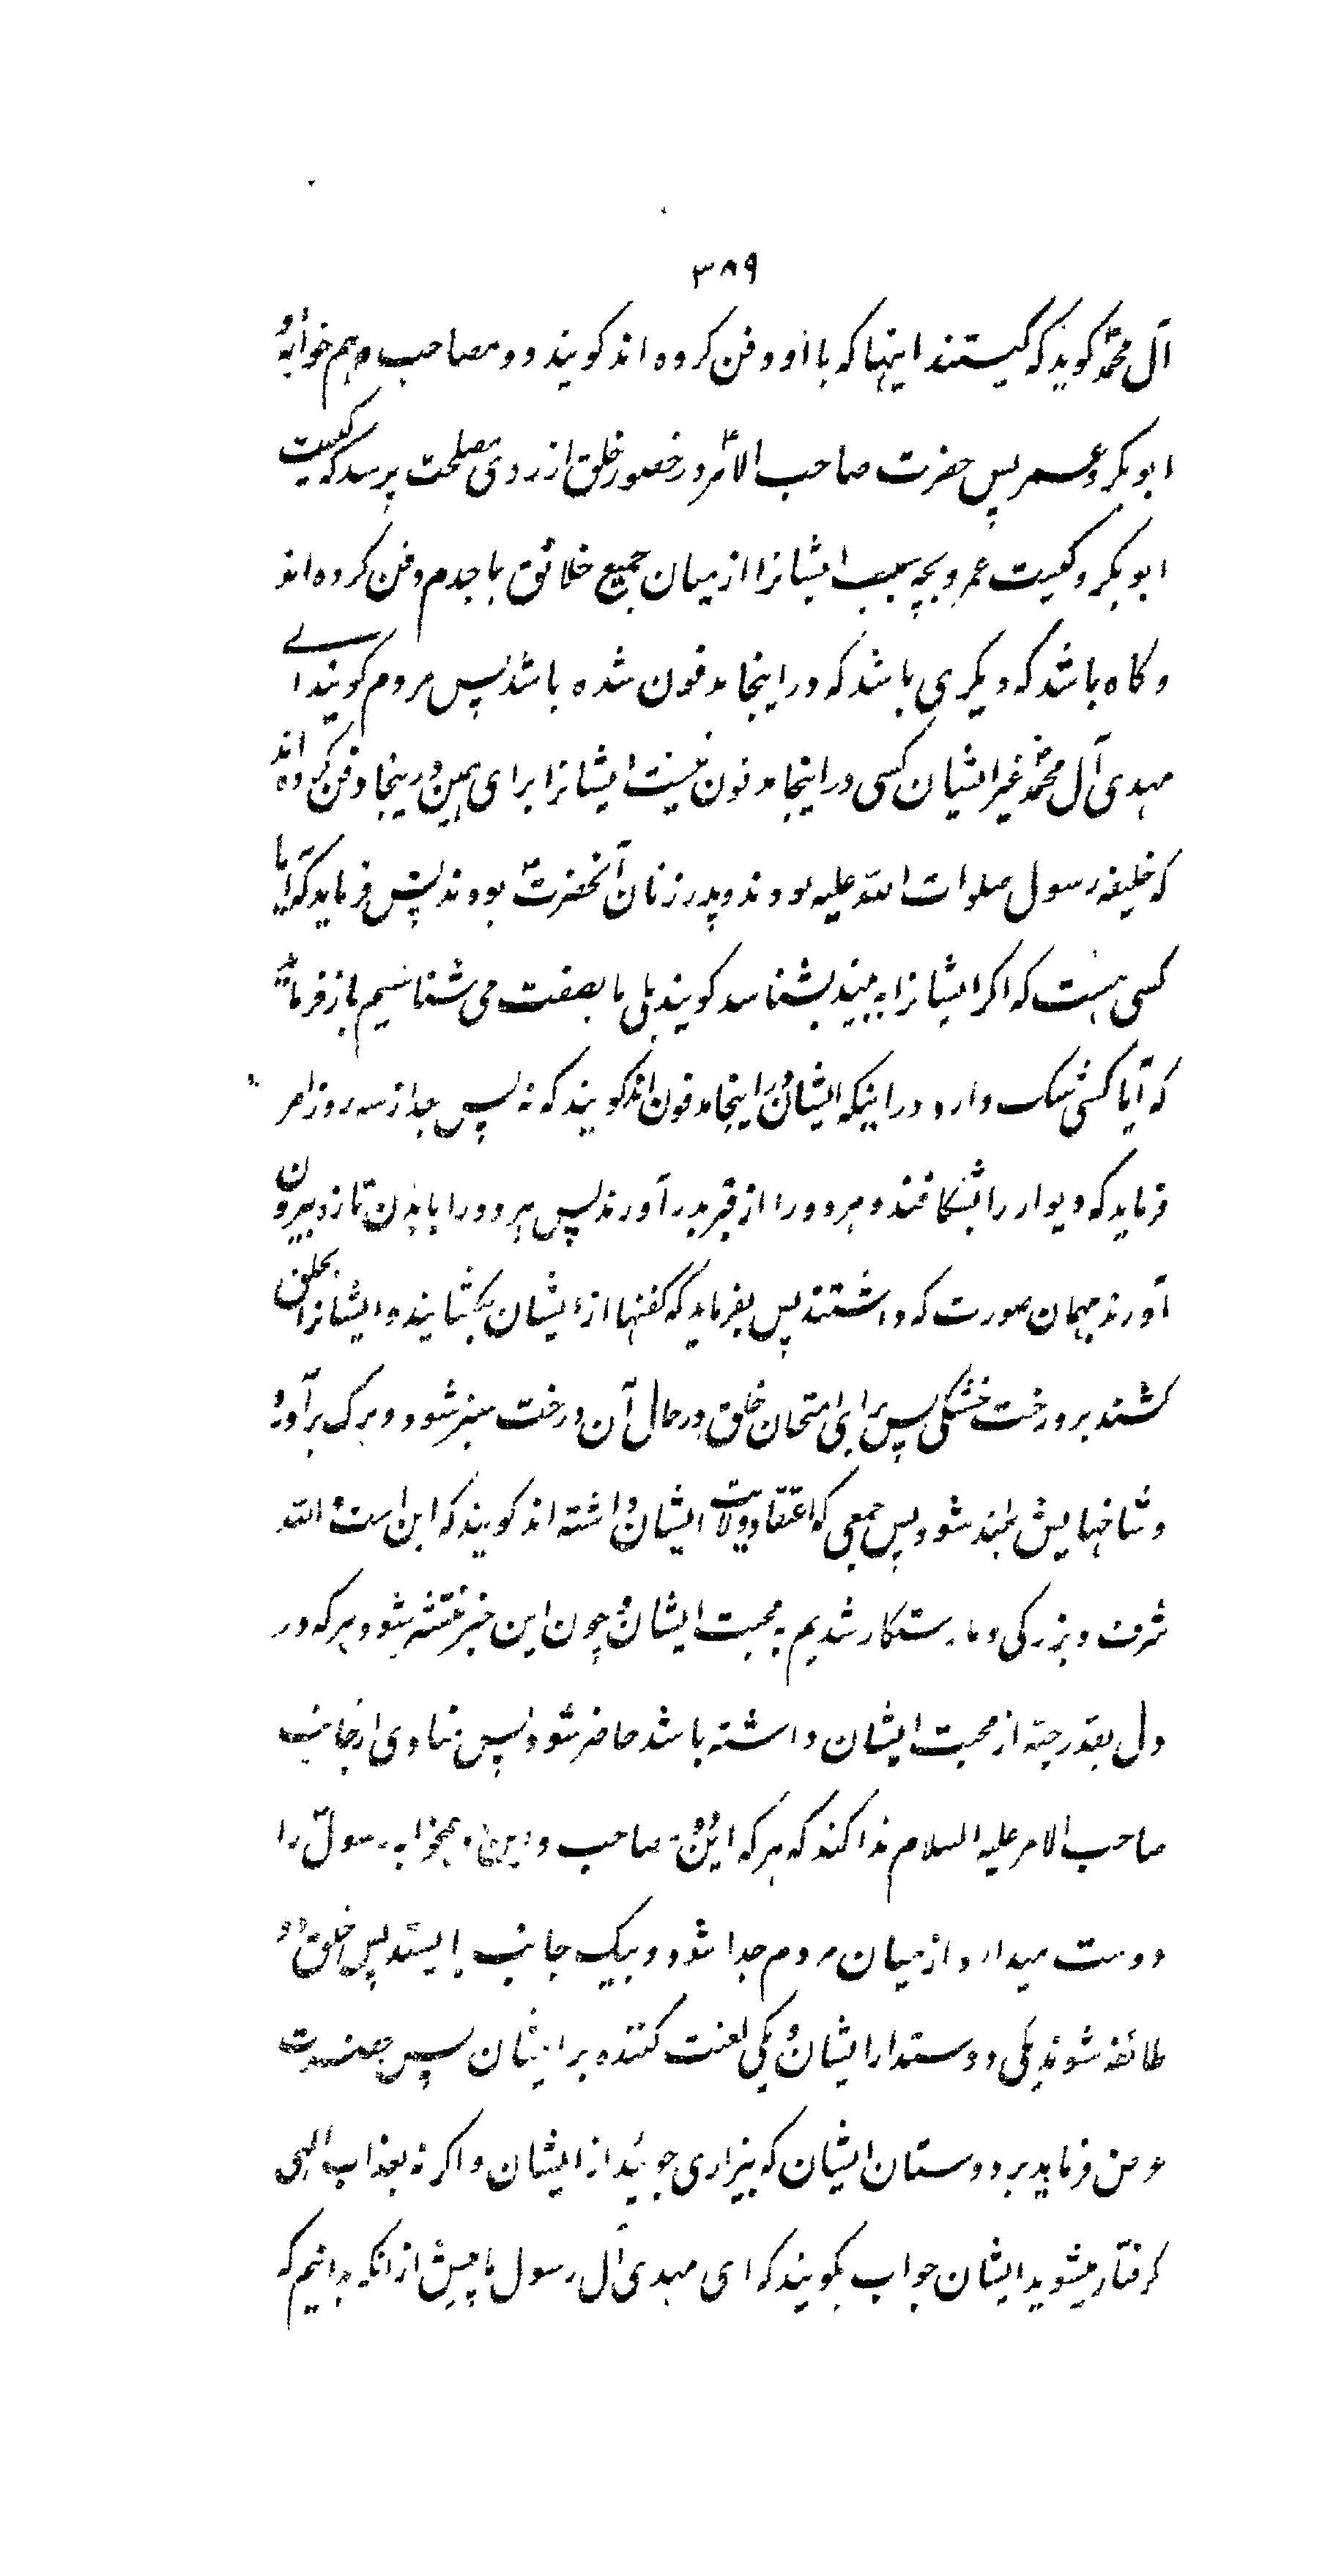 ۳۸۹
آل محمّد کوید که کیستند اینها که با او دفن کرده اند کویند دو مصاحب و هم خوابهٔ او
ابوبکر و عمر پس حضرت صاحب الامرؑ در حضور خلق از روی مصلحت پرسد که کیست
ابوبکر و کیست عمر و بچه سبب ایشانرا از میان جمیع خلائق با جدم دفن کرده اند
و کاه باشد که دیکری باشد که در اینجا مدفون شده باشد پس مردم کویند اے
مهدی آل محمّد غیر ایشان کسی در اینجا مدفون نیست ایشانرا برای همین در ینجا دفن کرده اند
که خلیفه رسول صلوات الله علیه بودند و پدر زنان آنحضرتؐ بودند پس فرماید که آیا
کسی هست که اکر ایشانرا به بیند بشناسد کویند بلی ما بصفت می شناسیم باز فرماید
که آیا کسی شک دارد در اینکه ایشان در اینجا مدفون اند کویند که نه پس بعد از سه روز امر
فرماید که دیوار را بشکافند و هر دو را از قبر بدر آورند پس هر دو را با بدن تازه بیرون
آورند بهمان صورت که داشتند پس بفرماید که کفنها از ایشان بکشایند و ایشانرا بحلق
کشند بر درخت خشکی پس برای امتحان خلق در حال آن درخت سبز شود و برک بر آورد
و شاخهایش بلند شود پس جمعی که اعتقاد ولایت ایشان داشته اند کویند که این است و الله
شرف و بزرکی و ما رستکار شدیم به محبت ایشان و چون این خبر منتشر شود هر که در
دل بقدر حبّه از محبت ایشان داشته باشد حاضر شود پس منادی از جانب
صاحب الامر علیه السلام ندا کند که هر که این دو مصاحب و همخوابه رسولؐ را
دوست میدارد از میان مردم جدا شود و بیک جانب بایستد پس خلق دو
طائفه شوند یکی دوستدار ایشان و یکی لعنت کننده بر ایشان پس حضرت
عرض فرماید بر دوستان ایشان که بیزاری جوئید از ایشان و اکر نه بعذاب الهی
کرفتار میشوید ایشان جواب بکویند که ای مهدی آل رسول ما پیش از انکه بدانیم که